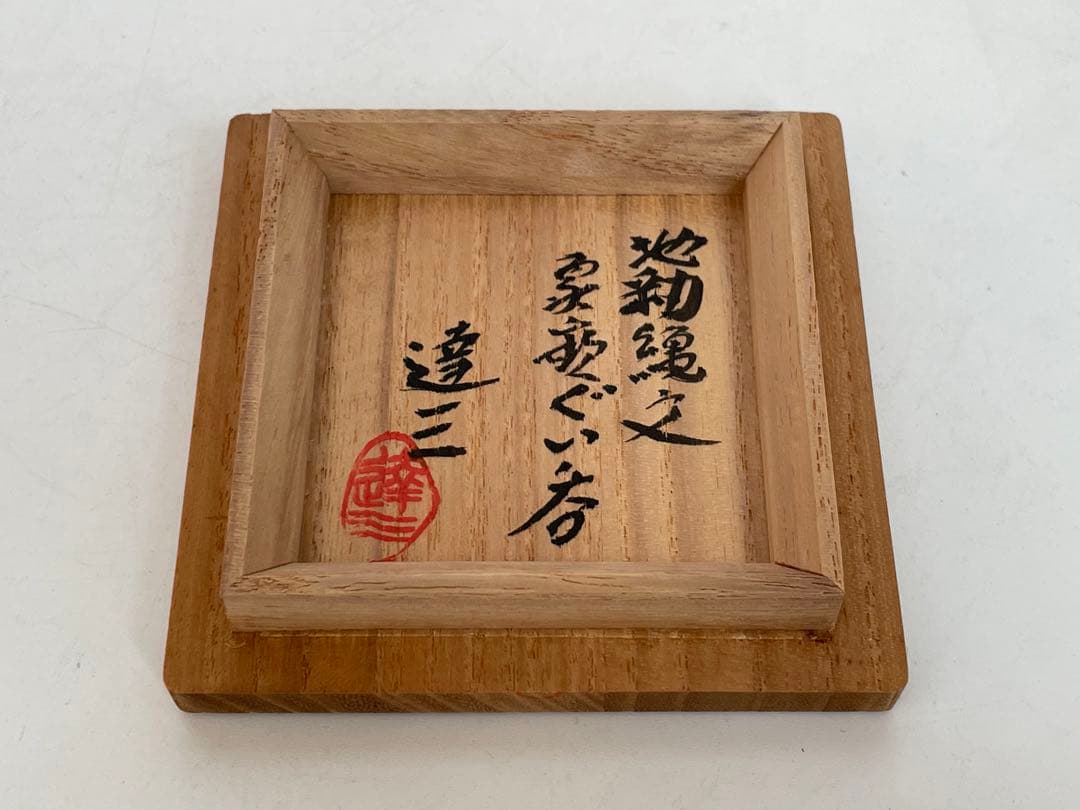 地釉縄文
象嵌ぐい呑
達三
達三